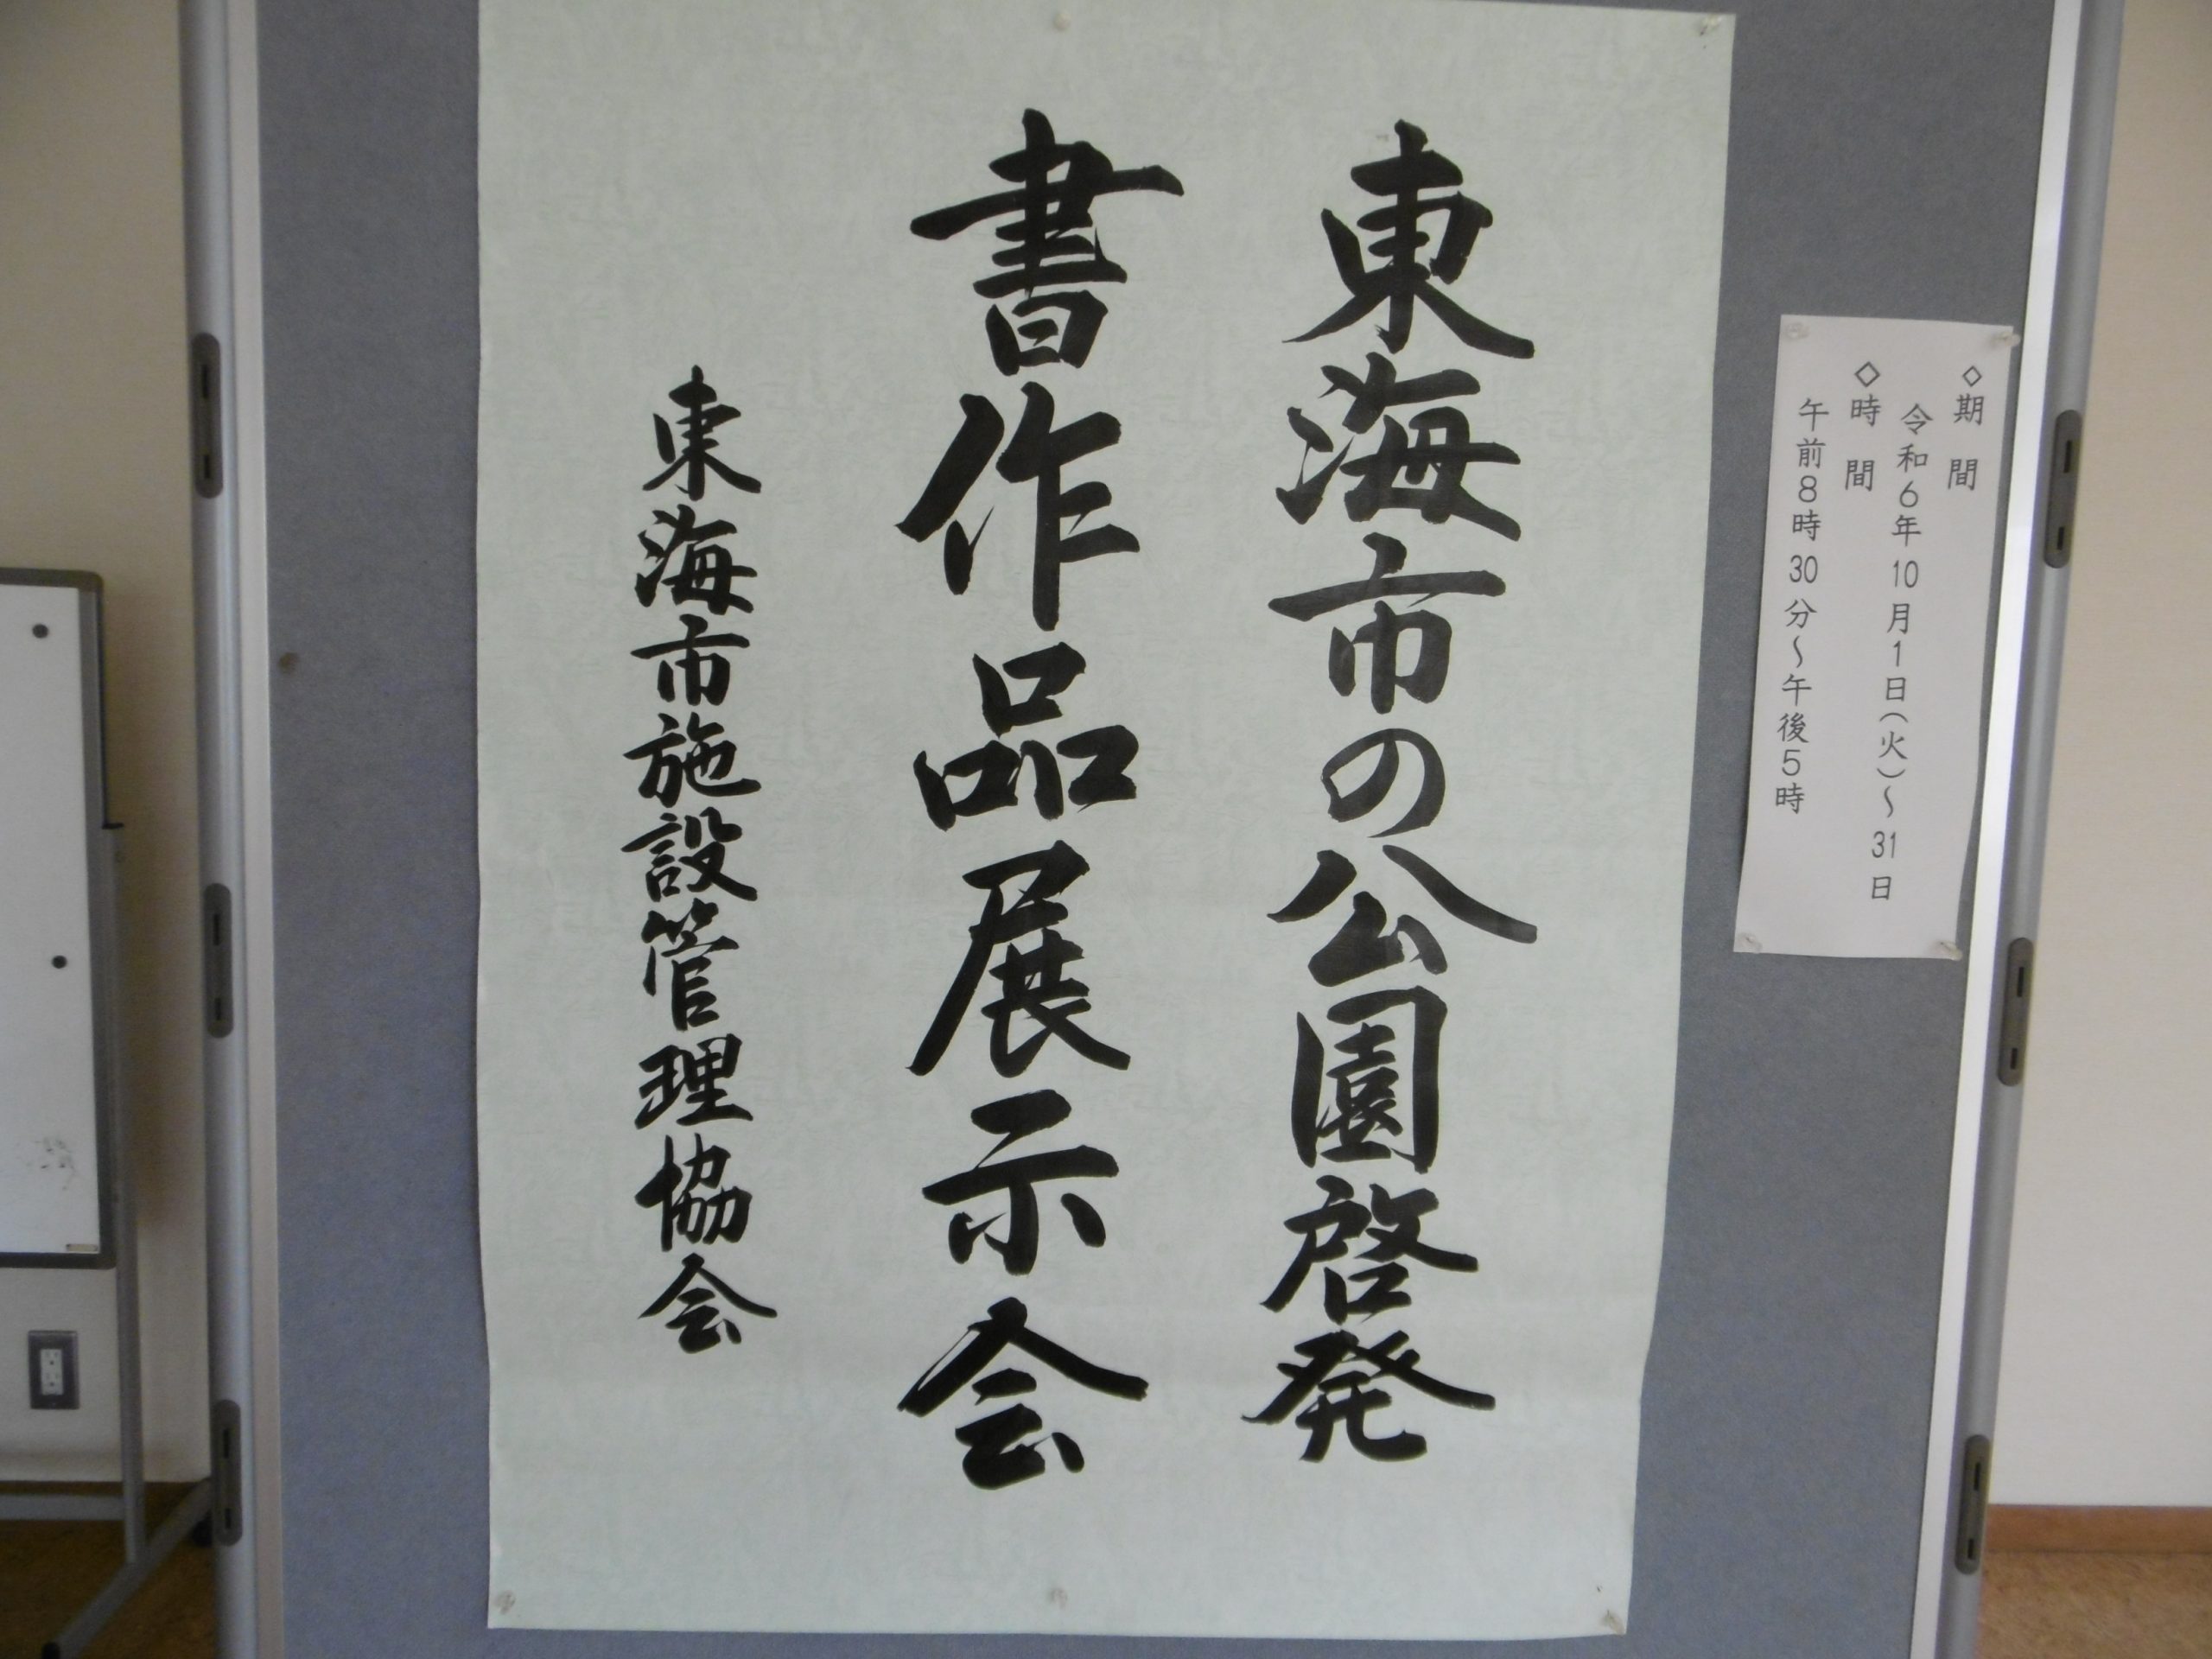 ◇期間
令和6年10月1日(火)～31日
◇時間
午前8時30分～午後5時
東海市の公園啓発
書作品展示会
東海市施設管理協会